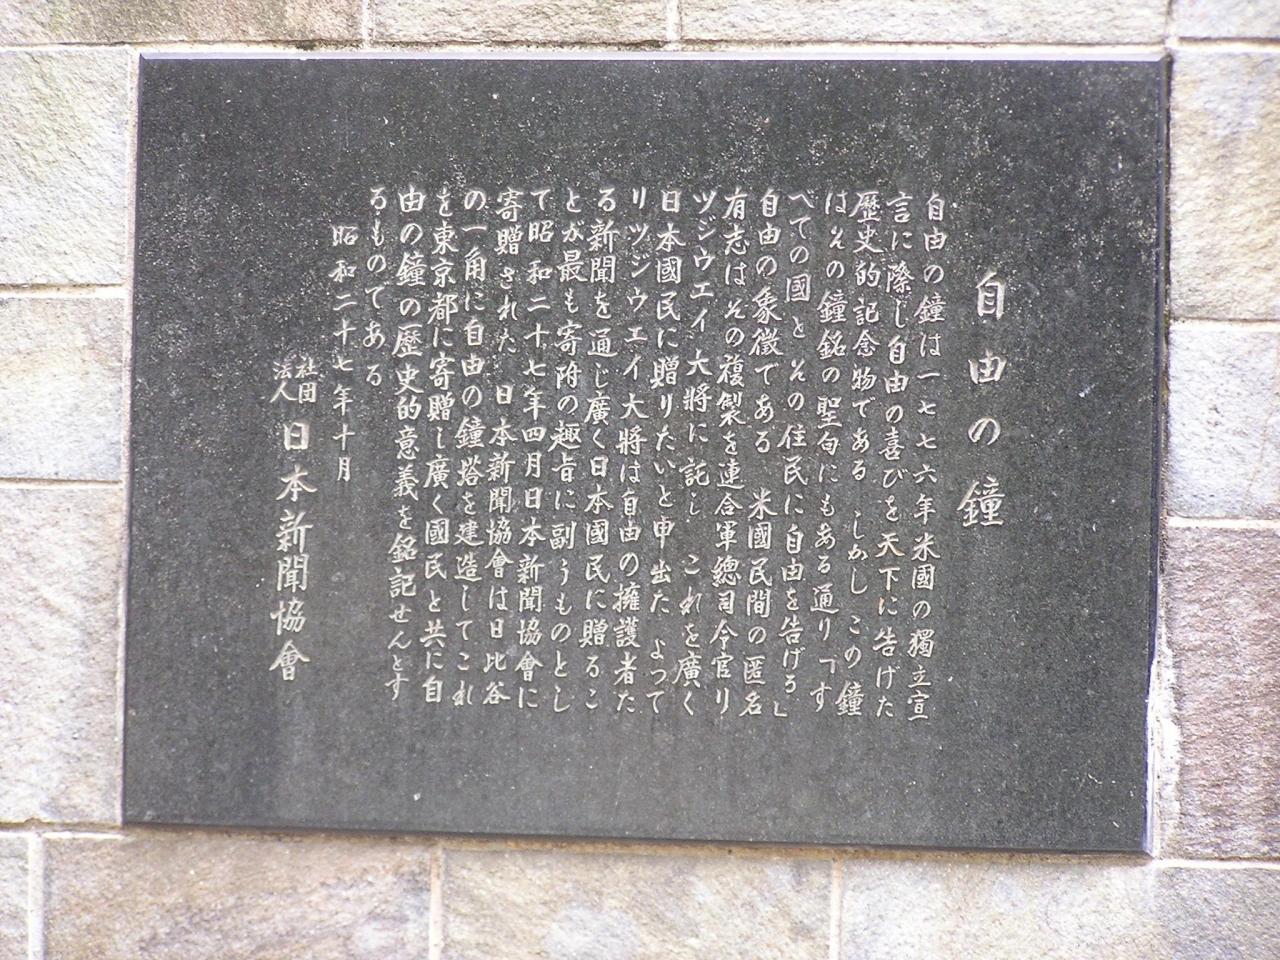 自由の鐘
自由の鐘は一七七六年米國の獨立宣
言に際し自由の喜びを天下に告げた
歴史的記念物である しかし この鐘
はその鐘銘の聖句にもある通り「す
べての國とその住民に自由を告げる」
自由の象徴である 米國民間の匿名
有志はその複製を連合軍總司令官リ
ツジウエイ大將に託し これを廣く
日本國民に贈りたいと申出た よつて
リツジウエイ大將は自由の擁護者た
る新聞を通じ廣く日本國民に贈るこ
とが最も寄附の趣旨に副うものとし
て昭和二十七年四月日本新聞協會に
寄贈された 日本新聞協會は日比谷
の一角に自由の鐘塔を建造してこれ
を東京都に寄贈し廣く國民と共に自
由の鐘の歴史的意義を銘記せんとす
るものである
昭和二十七年十月
社団法人 日本新聞協會